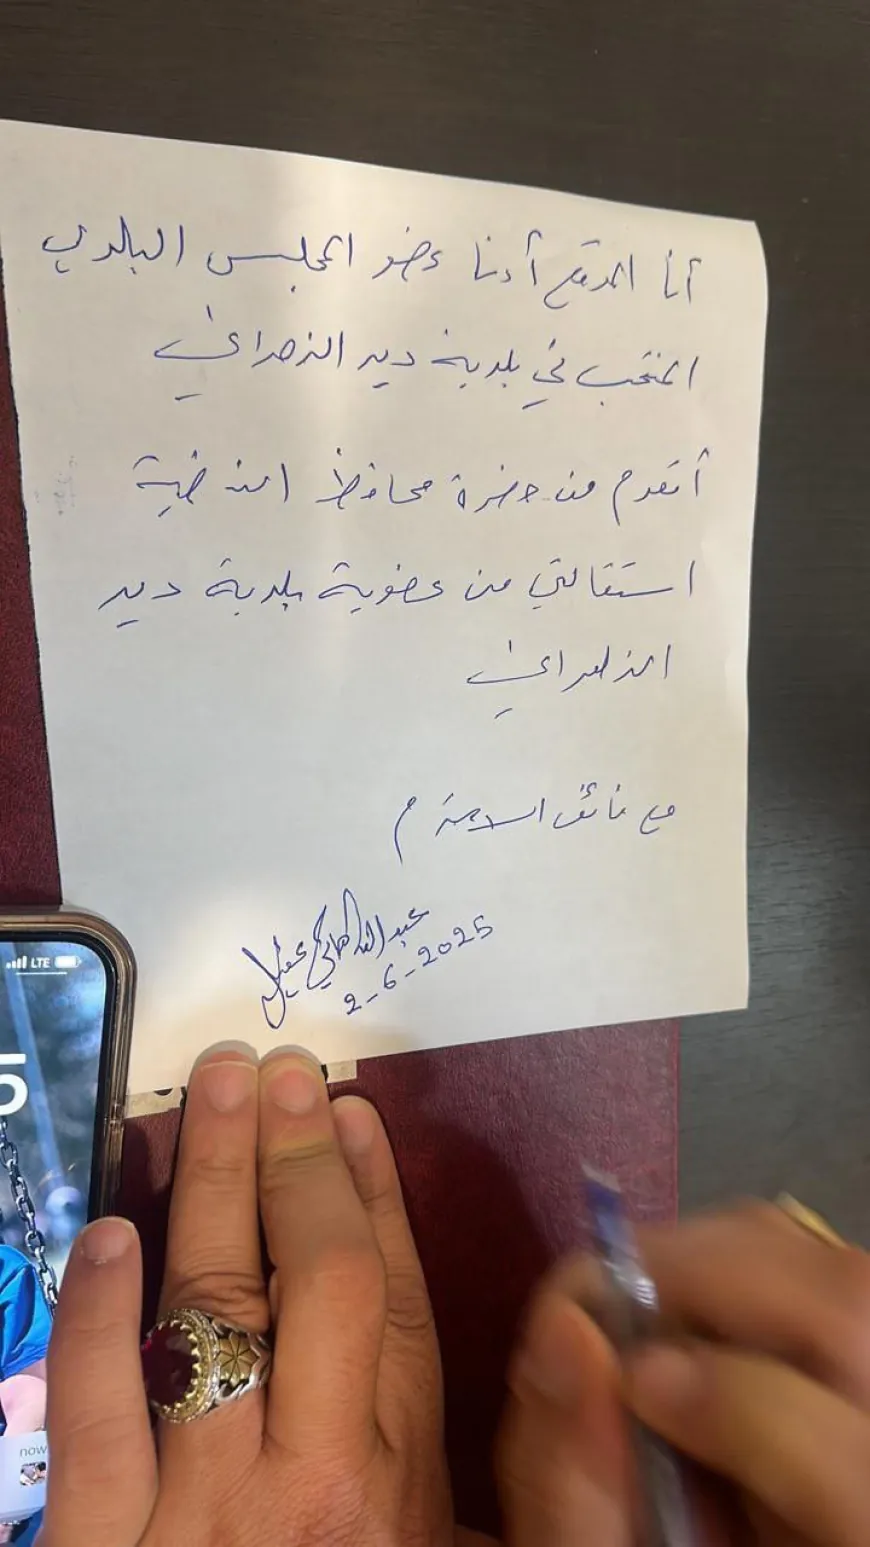 أنا الموقع أدنا عضو المجلس البلدي
المنتخب في بلدية دير الزهراني
أتقدم من حضرة محافظ النبطية
استقالتي من عضوية بلدية دير
الزهراني
مع فائق الاحترام
عبد الله هاني عقيل
2-6-2025
LTE
5
now